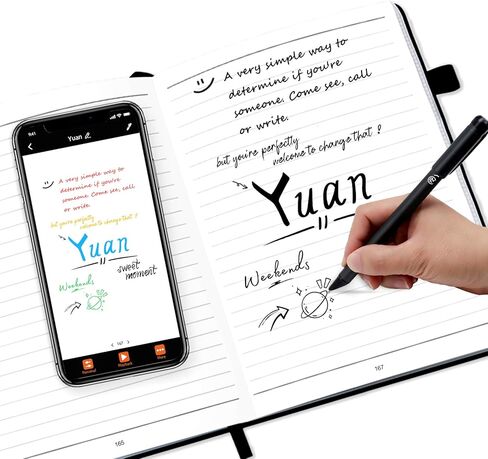 A very simple way to
determine if you're
someone. Come see, call
or write.
but you're perfectly
welcome to change that?
Yuan
Weekends
167
165
9:41
Yuan
A very simple way to
determine if you're
someone. Come see, call
or write.
but you're perfectly
welcome to change that!
Yuan
sweet
moment
Weekends
< 167 >
Playback
More